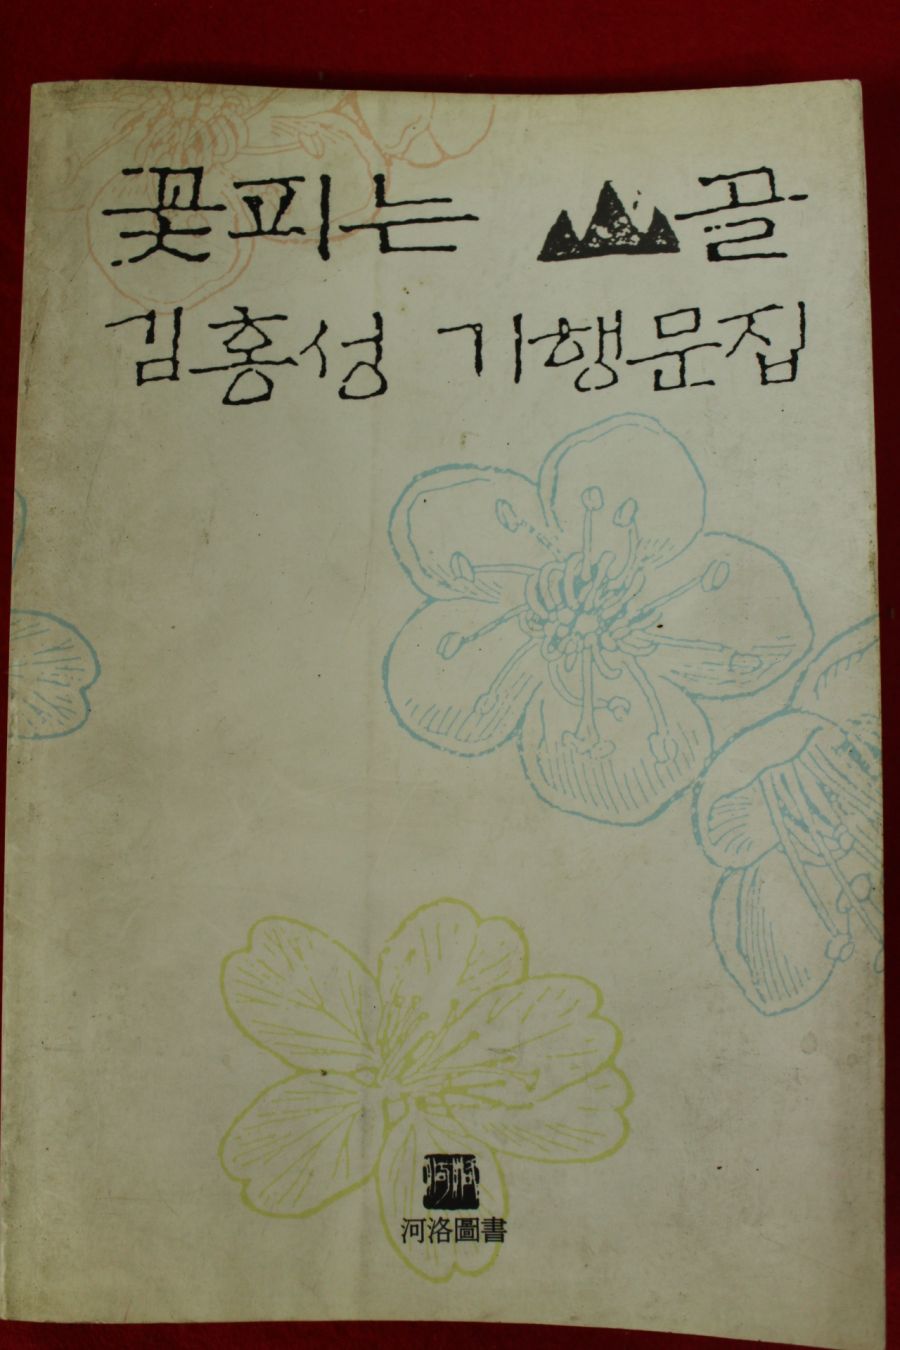 꽃피는 산골
김홍성 기행문집
河洛
河洛圖書